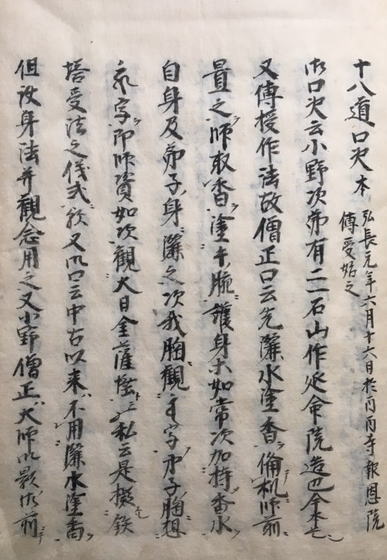 十八道口決 本
弘長元年六月十六日於
傳受始之 報恩院
御口決云小野次第有二石山作延命院造也今
又傳授作法故僧正口云先灑水塗香備机師前
置之師取香塗手腕護身木如常次加持香水
自身及弟子身灑之次我胸觀 字弟子胸想
字即師資如次觀大日金薩私云是擬鉄
塔受法之儀式歟又御口云中古以來不用灑水塗香
但汝身法并觀念用之又小野僧正大師御影御前